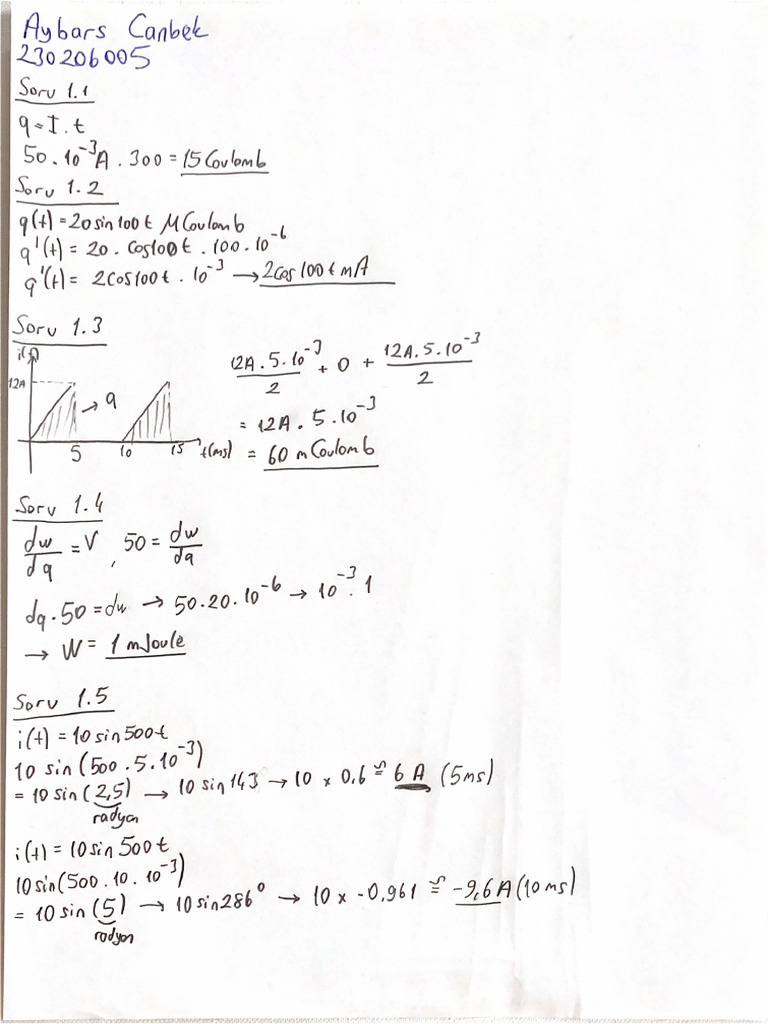 Aybars Canbek
230206005
Soru 1.1
q = I . t
50 . 10⁻³A . 300 = 15 Coulomb
Soru 1.2
q(t) = 20 sin 100 t MCoulomb
q'(t) = 20 . Cos100t . 100 . 10⁻⁶
q'(t) = 2Cos100t . 10⁻³ → 2cos 100 t mA
Soru 1.3
i(t)
12A
→ q
5 10 15 t(ms)
12A . 5 . 10⁻³ / 2 + 0 + 12A . 5 . 10⁻³ / 2
= 12A . 5 . 10⁻³
= 60 mCoulomb
Soru 1.4
dw/dq = V , 50 = dw/dq
dq . 50 = dw → 50 . 20 . 10⁻⁶ → 10⁻³ . 1
→ W = 1 mJoule
Soru 1.5
i(t) = 10 sin 500t
10 sin (500 . 5 . 10⁻³)
= 10 sin (2,5) → 10 sin 143 → 10 x 0.6 ≅ 6 A (5ms)
radyan
i(t) = 10 sin 500t
10 sin(500 . 10 . 10⁻³)
= 10 sin (5) → 10 sin 286° → 10 x -0.961 ≅ -9.6 A (10 ms)
radyan